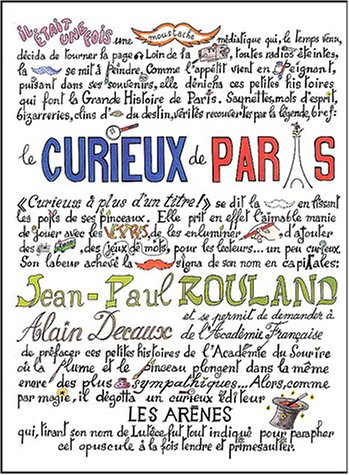 IL ÉTAIT UNE FOIS une moustache médiatique qui, le temps venu,
décida de tourner la page. Loin de la , toutes radios éteintes,
la se mit à peindre. Comme l'appétit vient en peignant,
puisant dans ses souvenirs, elle dénicha ces petites histoires
qui font la Grande Histoire de Paris. Saynettes, mots d'esprit,
bizarreries, clins d' du destin, vérités recouvertes par la légende, bref:
le CURIEUX de PARIS
« Curieux à plus d'un titre! » se dit la en lissant
les poils de ses pinceaux. Elle prit en effet l'aimable manie
de jouer avec les , de les enluminer, d'ajouter
des et , des jeux de mots, pour les lecteurs... un peu curieux.
Son labeur achevé la signa de son nom en capitales:
Jean-Paul ROULAND
et se permit de demander à
Alain Decaux de l'Académie Française
de préfacer ces petites histoires de l'Académie du Sourire
où la plume et le pinceau plongent dans la même
encre des plus sympathiques... Alors, comme
par magie, il dégotta un curieux éditeur
LES ARÈNES
qui, tirant son nom de Lutèce fut tout indiqué pour parapher
cet opuscule à la fois tendre et primesautier.